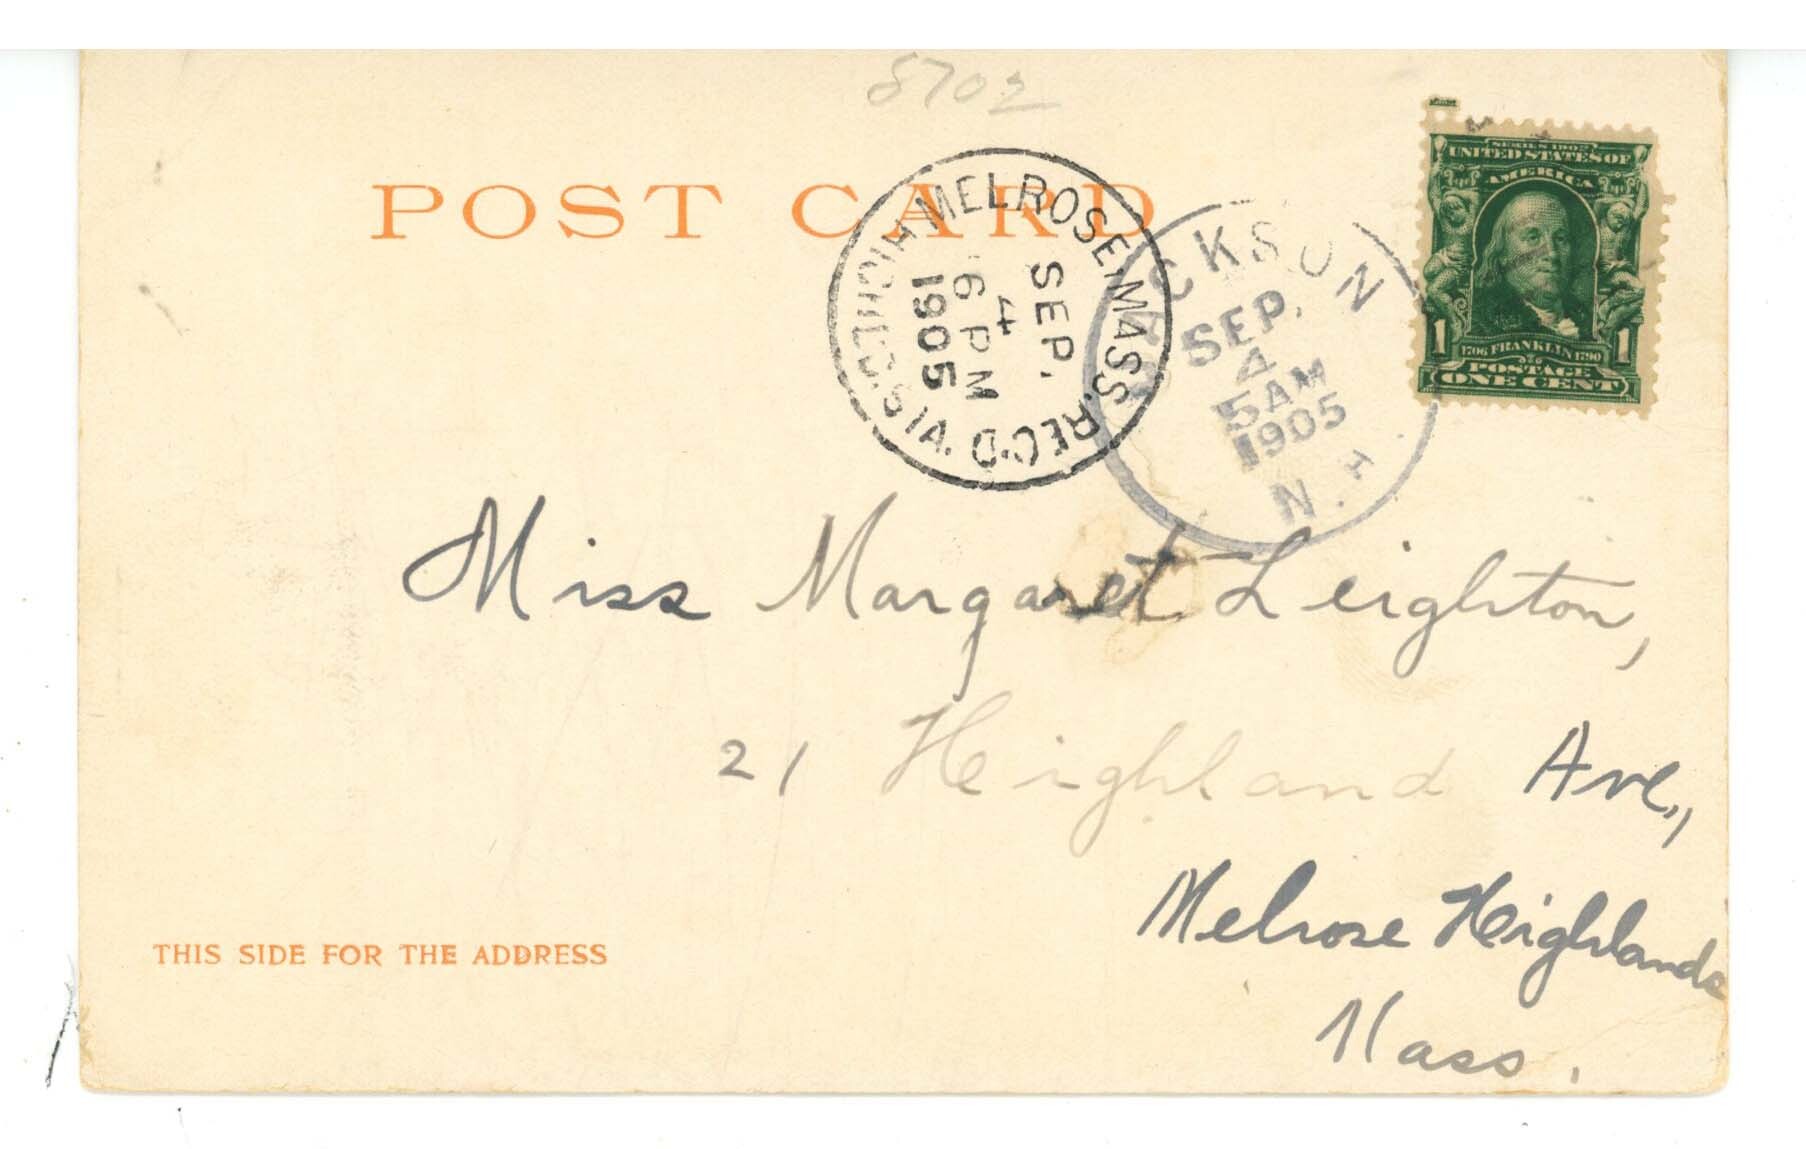 8702
POST CARD
MELROSE, MASS. REC'D.
HIGHL'DS STA.
SEP.
4
6 PM
1905
JACKSON
SEP.
4
5 AM
1905
N.H.
SERIES 1902
UNITED STATES OF
AMERICA
1 1
1706 FRANKLIN 1790
POSTAGE
ONE CENT
Miss Margaret Leighton,
21 Highland Ave.,
Melrose Highlands
Mass.
THIS SIDE FOR THE ADDRESS